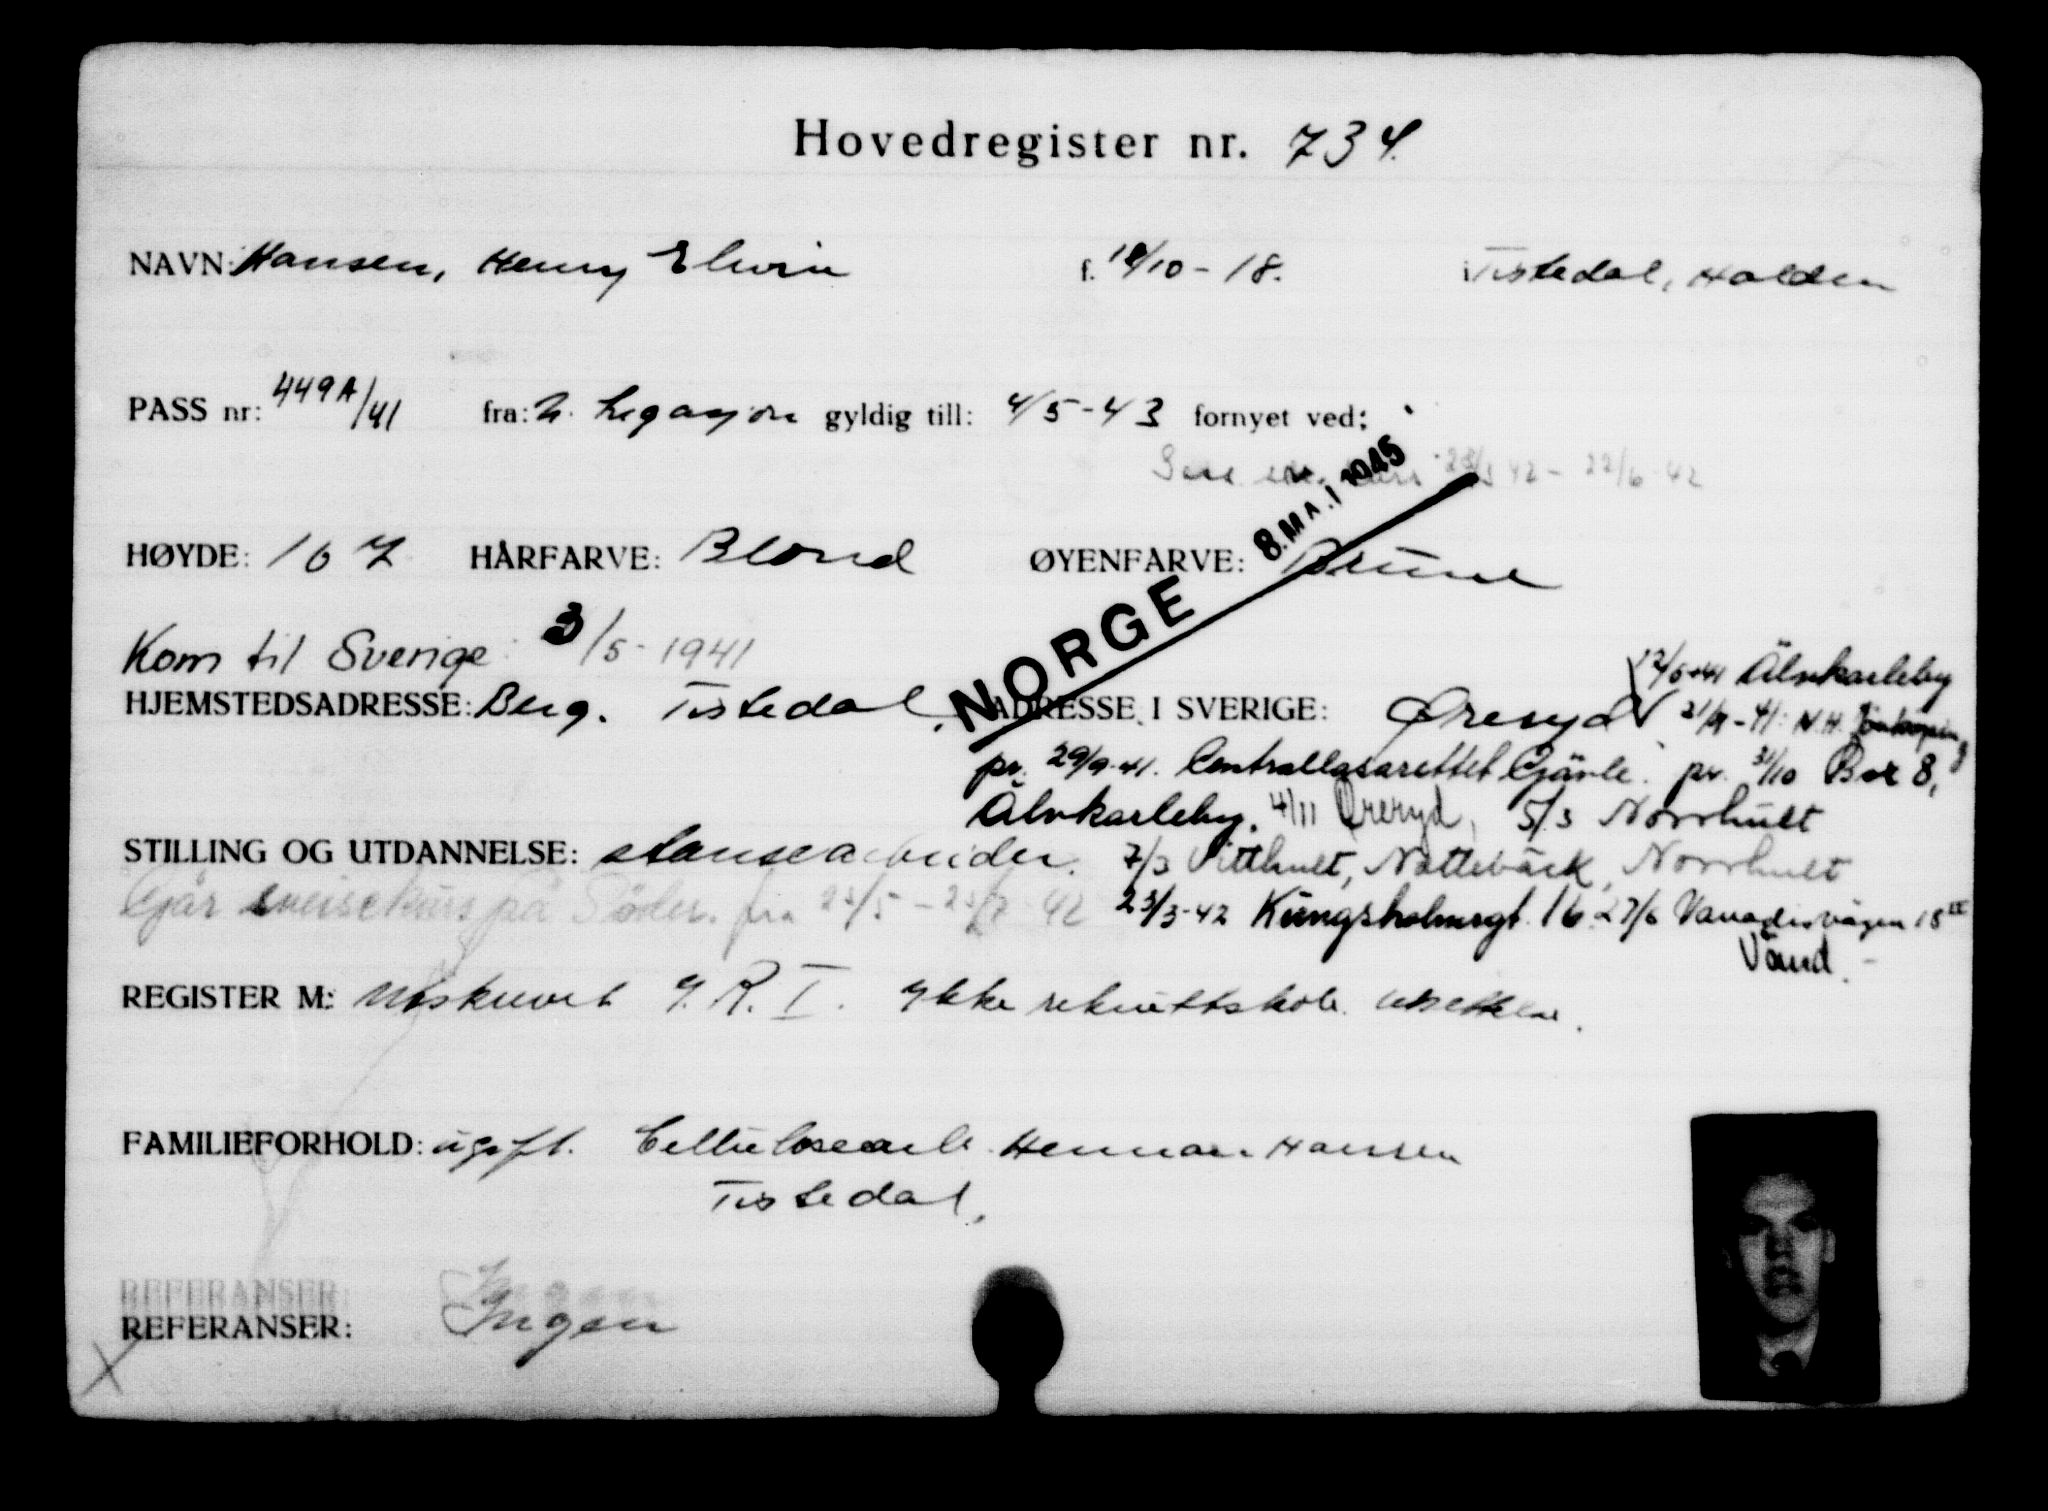 Hovedregister nr. 734.
NAVN: Hansen, Henry Elwin f. 18/10-18. i Tistedal, Halden
PASS nr: 449A/41 fra: N. Legasjon gyldig till: 4/5-43 fornyet ved:
42 - 22/6-42
8. MAI 1945
HØYDE: 167 HÅRFARVE: Blond ØYENFARVE: Brune
NORGE
Kom til Sverige: 3/5-1941
12/6-41 Älvkarleby
HJEMSTEDSADRESSE: Berg. Tistedal. ADRESSE I SVERIGE: Øreryd 21/9-41: N.H. Jönköping
pr. 29/9-41. Centrallasarettet Gävle. pr. 31/10 Box 8,
Älvkarleby. 4/11 Øreryd, 5/3 Norrhult
STILLING OG UTDANNELSE: stansearbeider. 7/3 Vitthult, Nottebäck, Norrhult
Går sveisekurs på Söder. fra 23/5 - 42 23/3-42 Kungsholmsgt. 16. 27/6 Vanadisvägen 18
Vänd.
REGISTER M: Utskrevet I.R. I. Ikke rekruttskole.
FAMILIEFORHOLD: ugift. Cellulosearb. Herman Hansen
Tistedal.
REFERANSER:
REFERANSER: Ingen